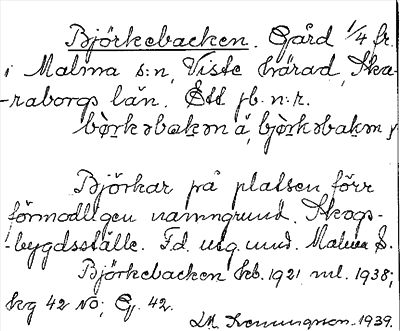 Björkebacken. Gård 1/4 fr.
i Malma s:n, Viste härad, Ska-
-raborgs län. Ett jb. n:r.
bö̀rkəbakən å, bjö̀rkəbakən
Björkar på platsen förr
förmodligen namngrund. Skogs-
-bygdsställe. Fd. utg. und. Malma S.
Björkebacken kb. 1921 ml. 1938;
kg 42 NO; G. 42.
1939.